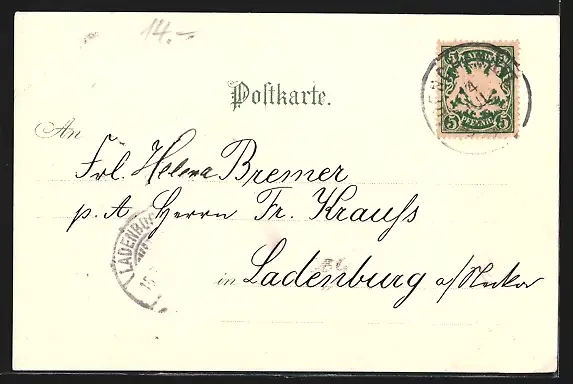 14.-
Postkarte.
BAYERN
5 PFENNIG 5
An
Frl. Helena Bremer
p. A. Herrn Fr. Krauss
LADENBURG
in Ladenburg a/Neckar